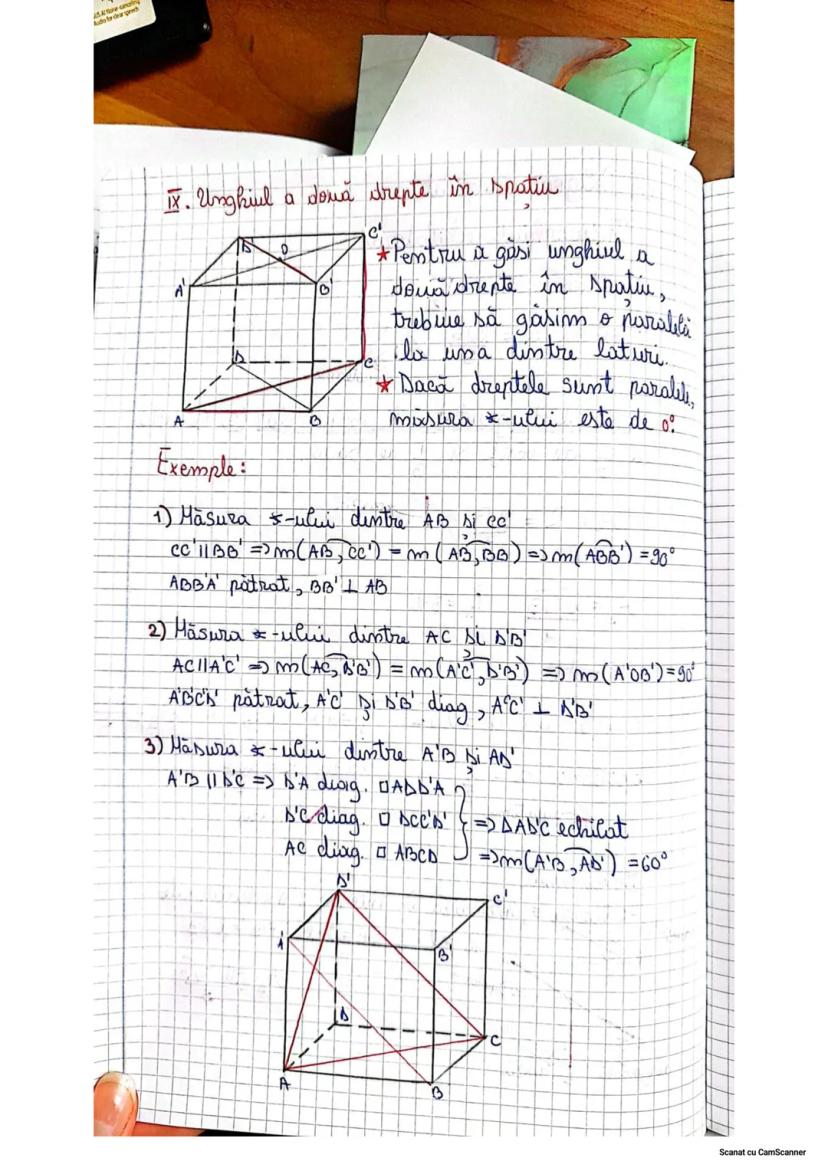 IX. Unghiul a două drepte în spațiu
★ Pentru a găsi unghiul a
două drepte în spațiu,
trebiue să găsim o paralelă
la una dintre laturi.
★ Dacă dreptele sunt paralele,
măsura ∢-ului este de 0°.
D' O C'
A' B'
D C
A B
Exemple:
1) Măsura ∢-ului dintre AB și CC'
CC' || BB' => m(AB, CC') = m(AB, BB') => m(ABB') = 90°
ABB'A' pătrat, BB' ⊥ AB
2) Măsura ∢-ului dintre AC și D'B'
AC || A'C' => m(AC, D'B') = m(A'C', D'B') => m(A'OB') = 90°
A'B'C'D' pătrat, A'C' și D'B' diag, A'C' ⊥ D'B'
3) Măsura ∢-ului dintre A'B și AD'
A'B || D'C => D'A diag. □ ADD'A'
D'C diag. □ DCC'D' } => ΔAD'C echilat
AC diag. □ ABCD => m(A'B, AD') = 60°
D' C'
A' B'
D C
A B
Scanat cu CamScanner